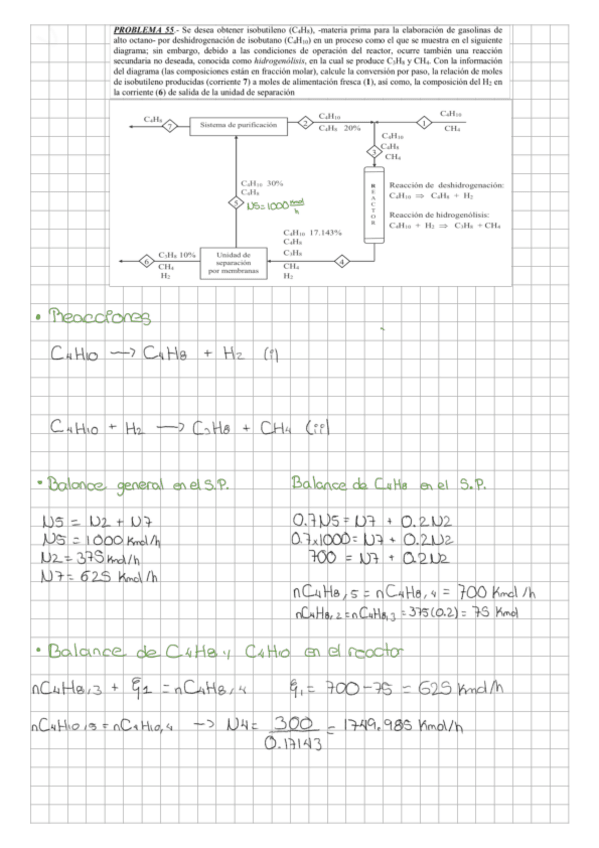 PROBLEMA 55.- Se desea obtener isobutileno (C₄H₈), -materia prima para la elaboración de gasolinas de
alto octano- por deshidrogenación de isobutano (C₄H₁₀) en un proceso como el que se muestra en el siguiente
diagrama; sin embargo, debido a las condiciones de operación del reactor, ocurre también una reacción
secundaria no deseada, conocida como hidrogenólisis, en la cual se produce C₃H₈ y CH₄. Con la información
del diagrama (las composiciones están en fracción molar), calcule la conversión por paso, la relación de moles
de isobutileno producidas (corriente 7) a moles de alimentación fresca (1), así como, la composición del H₂ en
la corriente (6) de salida de la unidad de separación
C₄H₈
7
Sistema de purificación
2
C₄H₁₀
C₄H₈ 20%
1
C₄H₁₀
CH₄
C₄H₁₀
C₄H₈
CH₄
3
C₄H₁₀ 30%
C₄H₈
5
N5=1000 kmol/h
REACTOR
Reacción de deshidrogenación:
C₄H₁₀ ⇒ C₄H₈ + H₂
Reacción de hidrogenólisis:
C₄H₁₀ + H₂ ⇒ C₃H₈ + CH₄
C₄H₁₀ 17.143%
C₄H₈
C₃H₈
CH₄
H₂
4
Unidad de
separación
por membranas
C₃H₈ 10%
CH₄
H₂
6
• Reacciones
C4H10 —> C4H8 + H2 (i)
C4H10 + H2 —> C3H8 + CH4 (ii)
• Balance general en el S.P.
N5 = N2 + N7
N5 = 1000 Kmol/h
N2 = 375 Kmol/h
N7 = 625 Kmol/h
Balance de C4H8 en el S.P.
0.7N5 = N7 + 0.2N2
0.7x1000 = N7 + 0.2N2
700 = N7 + 0.2N2
nC4H8,5 = nC4H8,4 = 700 Kmol/h
nC4H8,2 = nC4H8,3 = 375(0.2) = 75 Kmol
• Balance de C4H8 y C4H10 en el reactor
nC4H8,3 + ξ1 = nC4H8,4
ξ1 = 700-75 = 625 Kmol/h
nC4H10,5 = nC4H10,4 —> N4 = 300/0.17143 = 1749.985 Kmol/h